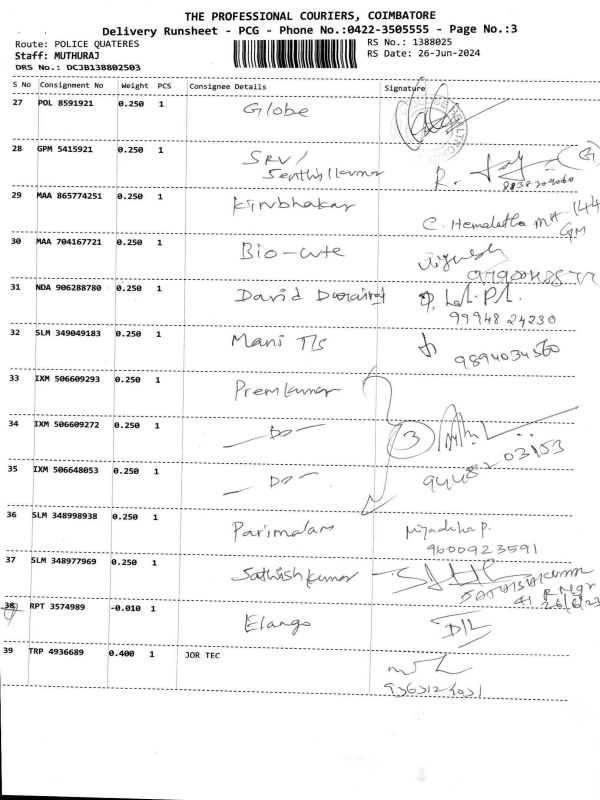 THE PROFESSIONAL COURIERS, COIMBATORE
Delivery Runsheet - PCG - Phone No.:0422-3505555 - Page No.:3
Route: POLICE QUATERES RS No.: 1388025
Staff: MUTHURAJ RS Date: 26-Jun-2024
DRS No.: DCJB138802503
S No Consignment No Weight PCS Consignee Details Signature
27 POL 8591921 0.250 1 Globe
28 GPM 5415921 0.250 1 SRV/
Senthilkumar R.
29 MAA 865774251 0.250 1 Kirubhakar
C. Hemalatha
30 MAA 704167721 0.250 1 Bio-cute
31 NDA 906288780 0.250 1 David Durairaj
99948 24230
32 SLM 349049183 0.250 1 Mani Tls
9894034560
33 IXM 506609293 0.250 1 Premkumar
34 IXM 506609272 0.250 1 — Do — 3
35 IXM 506648053 0.250 1 — Do —
36 SLM 348998938 0.250 1 Parimalam
9600923591
37 SLM 348977969 0.250 1 Sathishkumar
38 RPT 3574989 -0.010 1 Elango D/L
39 TRP 4936689 0.400 1 JOR TEC